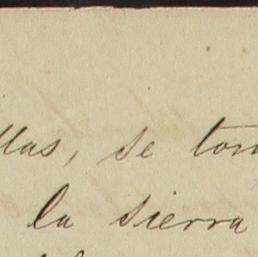 llas, se tom
la sierra